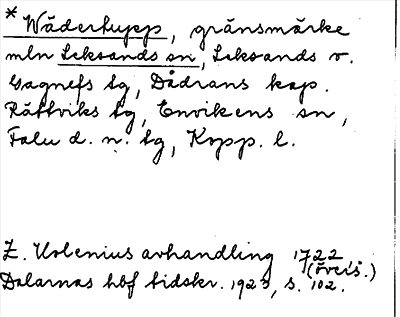 * Wäderkupp, gränsmärke
mln Leksands sn, Leksands o.
Gagnefs tg, Dådrans kap.
Rättviks tg, Envikens sn,
Falu d. n. tg, Kopp. l.
Z. Holenius avhandling 1722
(övers.)
Dalarnas hbf tidskr. 1923, s. 102.